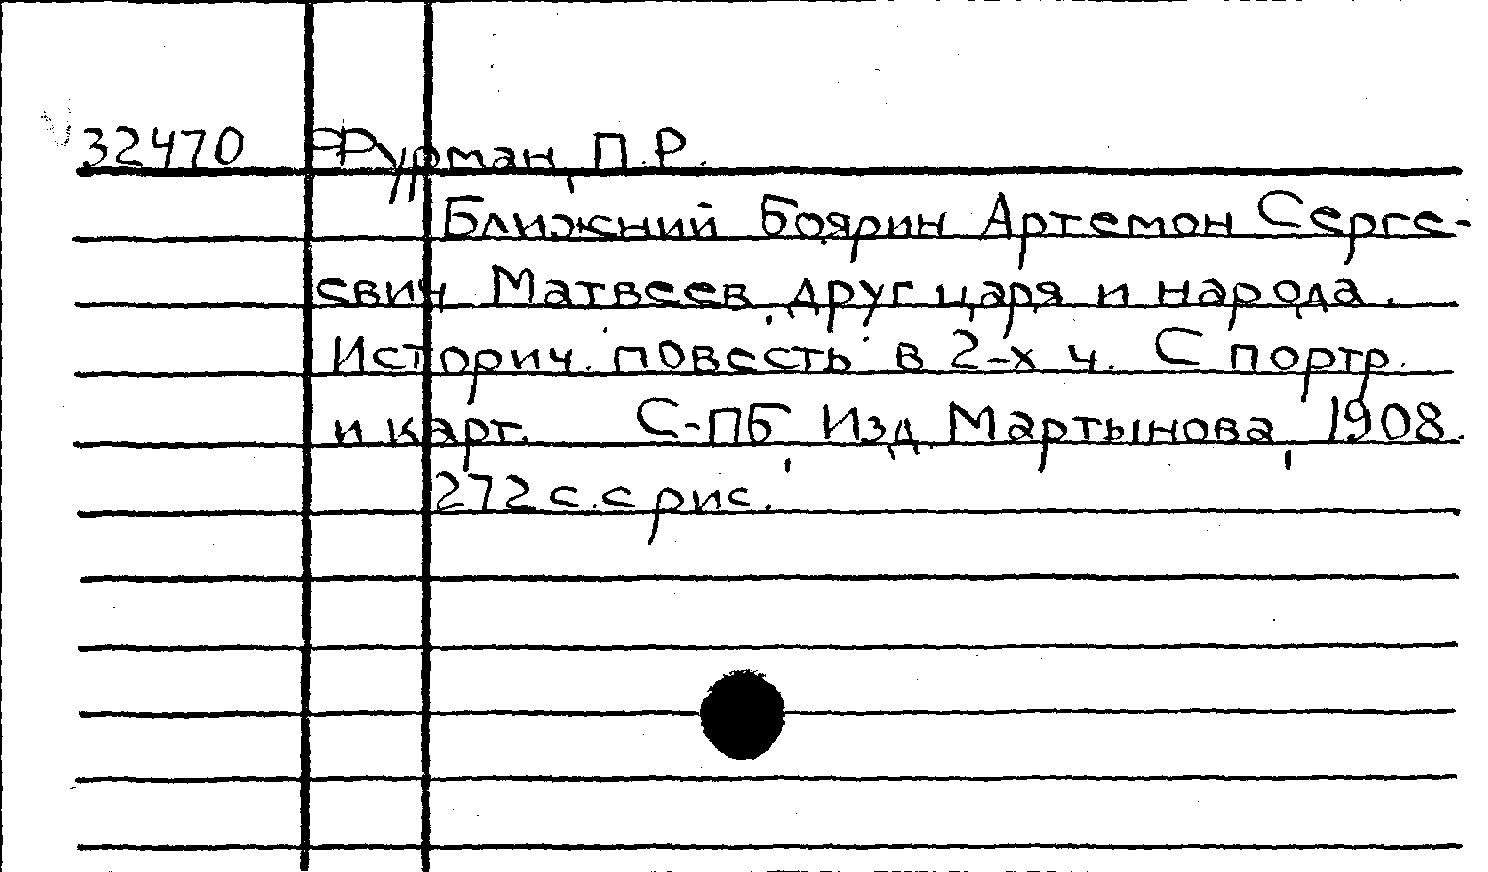 32470 Фурман, П.Р.
Ближний боярин Артемон Серге-
евич Матвеев, друг царя и народа.
Историч. повесть в 2-х ч. С портр.
и карт. С-ПБ, Изд. Мартынова, 1908.
272 с. с рис.